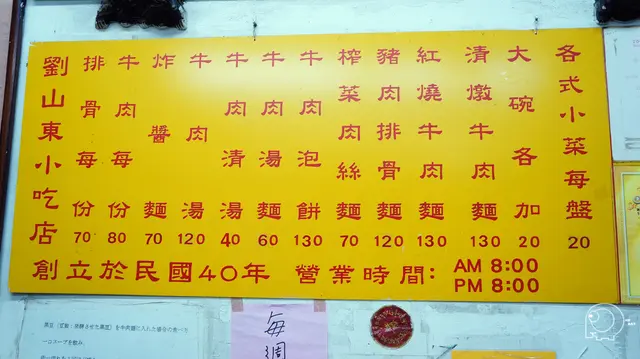 各式小菜每盤 20
大碗各加 20
清燉牛肉麵 130
紅燒牛肉麵 130
豬肉排骨麵 120
榨菜肉絲麵 70
牛肉泡餅 130
牛肉湯麵 60
牛肉清湯 40
牛肉湯 120
炸醬麵 70
牛肉每份 80
排骨每份 70
劉山東小吃店
創立於民國40年 營業時間: AM 8:00
PM 8:00
一口スープを飲み、
每週